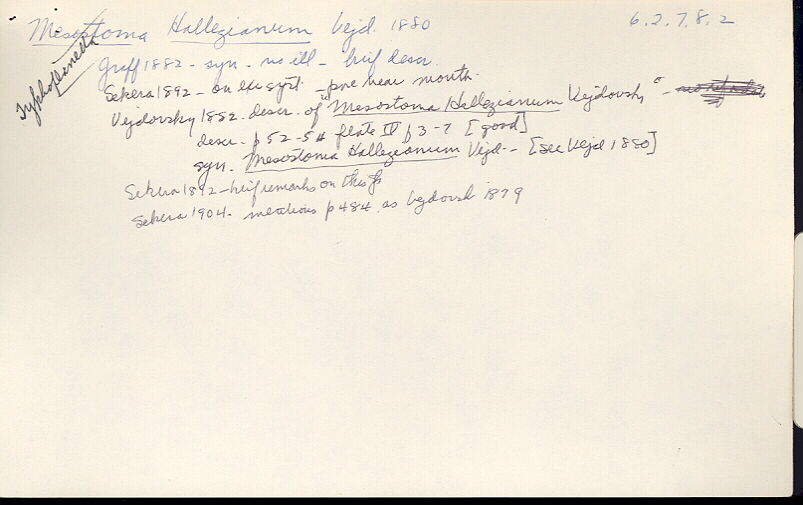 Mesostoma Hallezianum Vejd. 1880 6.2.7.8.2
Typhloplanella
Graff 1882 - syn. - no ill - brief descr.
Sekera 1892 - on exc syst. - pore near mouth.
Vejdovsky 1882. descr. of "Mesostoma Hallezianum Vejdovsky" -
descr. - p 52-54 plate IV f 3-7 [good]
syn. Mesostoma Hallezianum Vejd. - [see Vejd 1880]
Sekera 1892 - brief remarks on this
Sekera 1904. mentions p 484 as Vejdovsk 1879